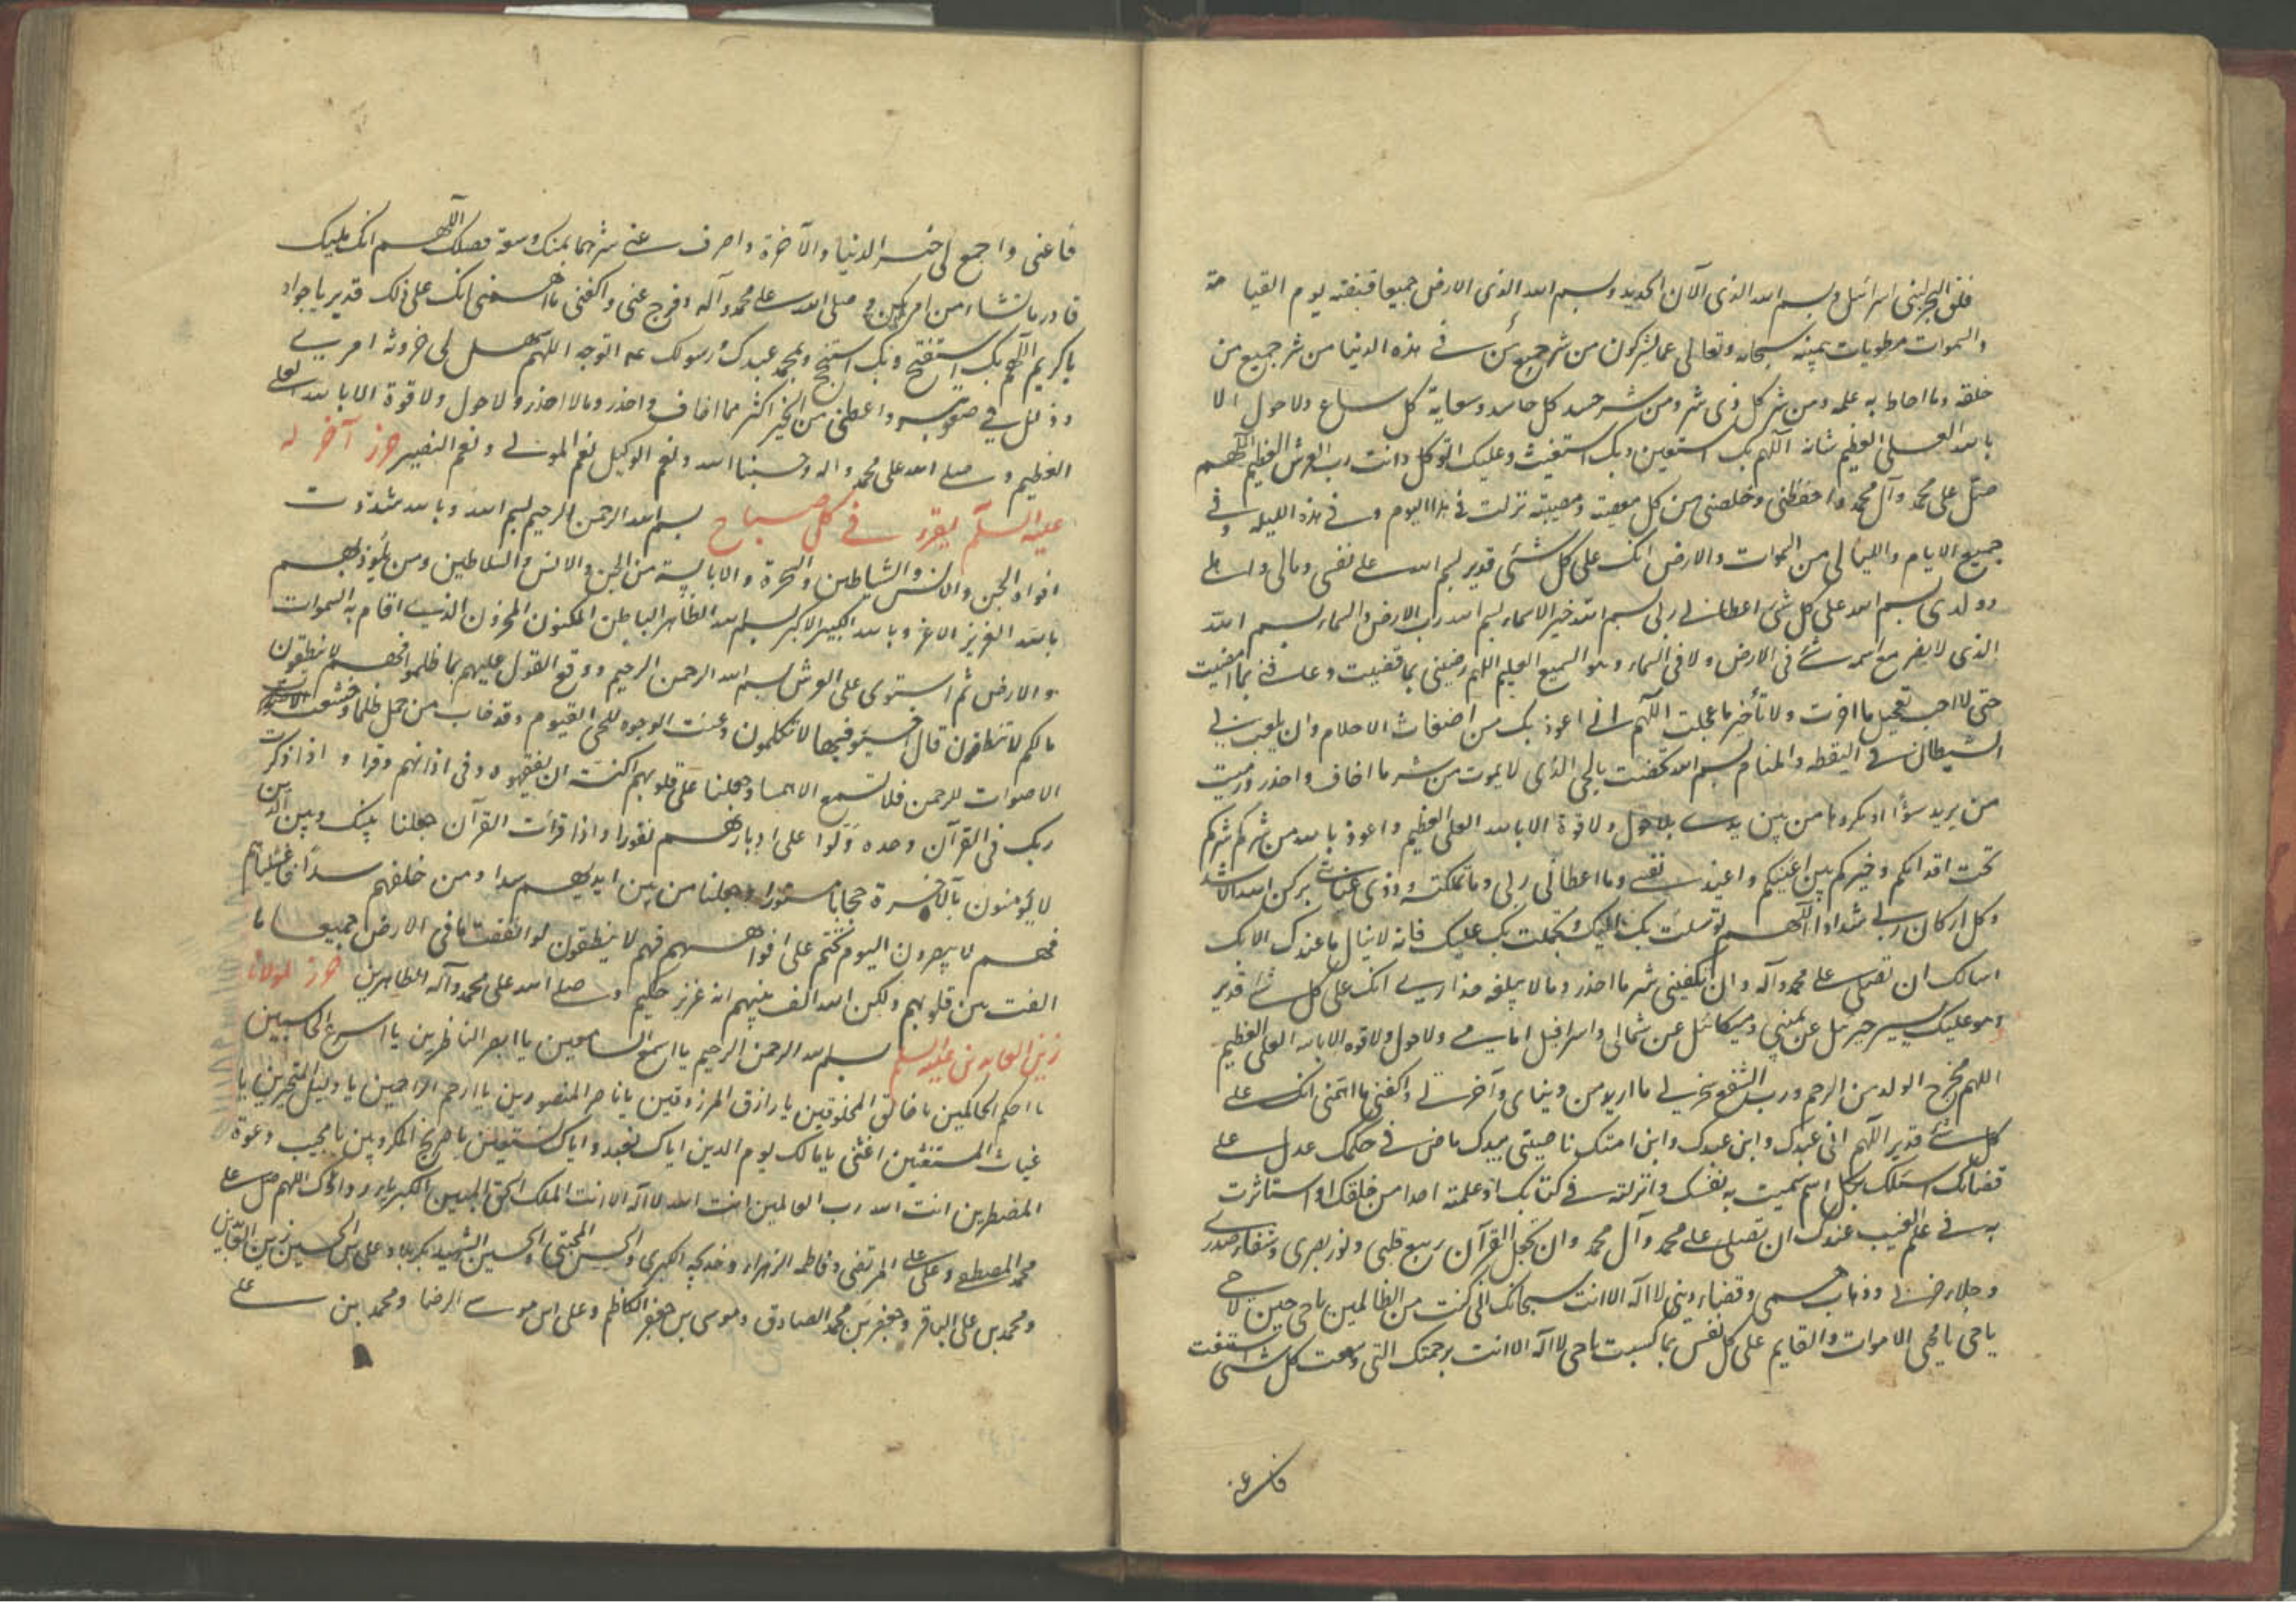 فلق البحر لبنى اسرائيل وبسم الله الذى الآن الحديد وبسم الله الذى الارض جميعا قبضته يوم القيامة
والسموات مطويات بيمينه سبحانه وتعالى عما يشركون من شر جميع من فى هذه الدنيا من شر جميع من
خلقه وما احاط به علمه ومن شر كل ذى شر ومن شر حسد كل حاسد وسعاية كل ساع ولا حول الا
بالله العلى العظيم شانه اللهم بك استعين وبك استغيث وعليك اتوكل وانت رب العرش العظيم اللهم
صل على محمد وآل محمد واحفظنى وخلصنى من كل معصية ومصيبة نزلت فى هذا اليوم وفى هذه الليلة وفى
جميع الايام والليالى من السموات والارض انك على كل شئ قدير بسم الله على نفسى ومالى واهلى
وولدى بسم الله على كل شئ اعطانى ربى بسم الله خير الاسماء بسم الله رب الارض والسماء بسم الله
الذى لا يضر مع اسمه شئ فى الارض ولا فى السماء وهو السميع العليم اللهم رضينى بما قضيت وعافنى بما امضيت
حتى لا احب تعجيل ما اخرت ولا تأخير ما عجلت اللهم انى اعوذ بك من اضغاث الاحلام وان يلعب بى
الشيطان فى اليقظه والمنام بسم الله تحصنت بالحى الذى لا يموت من شر ما اخاف واحذر ورميت
من يريد سوأ او مكروها من بين يدى بلا حول ولا قوة الا بالله العلى العظيم واعوذ بالله من شركم شركم
تحت اقدامكم وخيركم بين اعينكم واعيذ نفسى وما اعطانى ربى وما تملكته وذوى عنايتى بركن الله الاشد
وكل اركان ربى شدادا اللهم توسلت بك اليك وتحملت بك عليك فانه لا ينال ما عندك الا بك
اسالك ان تصلى على محمد وآله وان تكفينى شر ما احذر وما لا يبلغه حذارى انك على كل شئ قدير
وهو عليك يسير جبرئيل عن يمينى وميكائيل عن شمالى واسرافيل امامى ولا حول ولا قوة الا بالله العلى العظيم
اللهم مخرج الولد من الرحم ورب الشفع سخر لى ما اريد من دنياى وآخرتى واكفنى ما اهمنى انك على
كل شئ قدير اللهم انى عبدك وابن عبدك وابن امتك ناصيتى بيدك ماض فى حكمك عدل على
قضائك اسئلك بكل اسم سميت به نفسك وانزلته فى كتابك او علمته احدا من خلقك او استاثرت
به فى علم الغيب عندك ان تصلى على محمد وآل محمد وان تجعل القرآن ربيع قلبى ونور بصرى وشفاء صدرى
وجلاء حزنى وذهاب همى وقضاء دينى لا اله الا انت سبحانك انى كنت من الظالمين يا حى حين لا حى
يا حى يا محيى الاموات والقايم على كل نفس بما كسبت يا حى لا اله الا انت برحمتك التى وسعت كل شئ استغثت
فاعنى
فاعنى واجمع لى خير الدنيا والآخرة واصرف عنى شرهما بمنك وسعة فضلك اللهم انك مليك
قادر ما تشاء من امر يكن وصلى الله على محمد وآله وفرج عنى واكفنى ما اهمنى انك على ذلك قدير يا جواد
يا كريم اللهم بك استفتح وبك استنجح وبمحمد عبدك ورسولك ‌اتوجه اللهم سهل لى حزونة امرى
وذلل لى صعوبته واعطنى من الخير اكثر مما اخاف واحذر وما لا احذر ولا حول ولا قوة الا بالله العلى
العظيم وصلى الله على محمد واله وحسبنا الله ونعم الوكيل نعم المولى ونعم النصير حرز آخر له
عليه السلم يقرء فى كل صباح بسم الله الرحمن الرحيم بسم الله وبالله شددت
افواه الجن والانس والشياطين والسحرة والابالسة من الجن والانس والسلاطين ومن يلوذ بهم
بالله العزيز الاعز وبالله الكبير الاكبر بسم الله الظاهر الباطن المكنون المخزون الذى اقام به السموات
والارض ثم استوى على العرش بسم الله الرحمن الرحيم ووقع القول عليهم بما ظلموا فهم لا ينطقون
مالكم لا تنطقون قال اخسئوا فيها لا تكلمون وعنت الوجوه للحى القيوم وقد خاب من حمل ظلما وخشعت
الاصوات للرحمن فلا تسمع الا همسا وجعلنا على قلوبهم اكنة ان يفقهوه وفى اذانهم وقرا واذا ذكرت
ربك فى القرآن وحده ولوا على ادبارهم نفورا واذا قرأت القرآن جعلنا بينك وبين الذين
لا يؤمنون بالآخرة حجابا مستورا وجعلنا من بين ايديهم سدا ومن خلفهم سدا فاغشيناهم
فهم لا يبصرون اليوم نختم على افواههم فهم لا ينطقون لو انفقت ما فى الارض جميعا ما
الفت بين قلوبهم ولكن الله الف بينهم انه عزيز حكيم وصلى الله على محمد وآله الطاهرين حرز لمولانا
زين العابدين عليه السلم بسم الله الرحمن الرحيم يا اسمع السامعين يا ابصر الناظرين يا اسرع الحاسبين
يا احكم الحاكمين يا خالق المخلوقين يا رازق المرزوقين يا ناصر المنصورين يا ارحم الراحمين يا دليل المتحيرين يا
غياث المستغثين اغثنى يا مالك يوم الدين اياك نعبد واياك نستعين يا صريخ المكروبين يا مجيب دعوة
المضطرين انت الله رب العالمين انت الله لا اله الا انت الملك الحق المبين الكبرياء رداؤك اللهم صل على
محمد المصطفى وعلى على المرتضى وفاطمه الزهراء وخديجه الكبرى والحسن المجتبى والحسين الشهيد بكربلا وعلى بن الحسين زين العابدين
ومحمد بن على الباقر وجعفر بن محمد الصادق وموسى بن جعفر الكاظم وعلى ابن موسى الرضا ومحمد ابن على